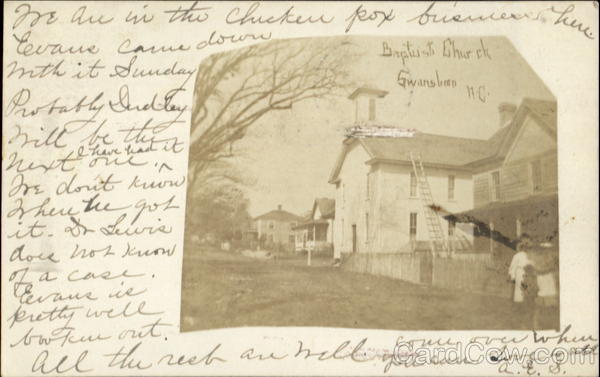 We are in the chicken pox business here
Evans came down
with it Sunday
Probably Dudley
will be the
next one. I have had it
We don't know
where he got
it. Dr Lewis
does not know
of a case.
Evans is
pretty well
broken out.
All the rest are well. Come over when
A.E.S.
Baptist Church
Swansboro
N.C.
CardCow.com